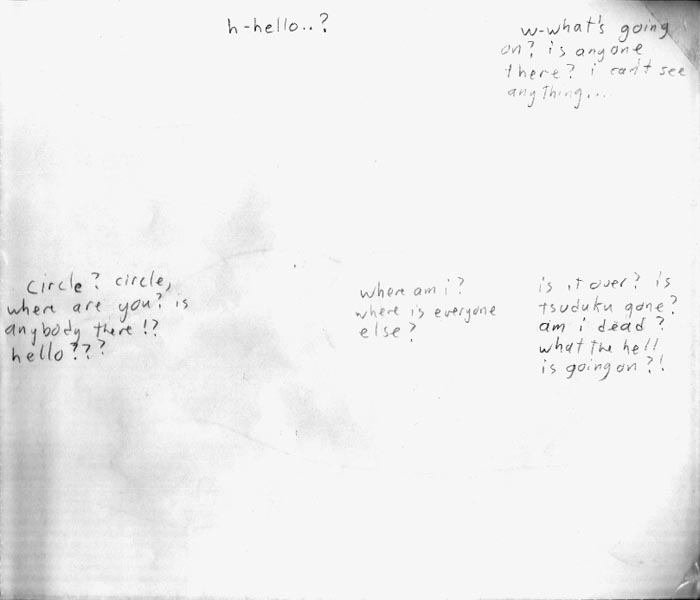 h-hello..?
w-what's going
on? is anyone
there? i can't see
anything...
circle? circle,
where are you? is
anybody there!?
hello???
where am i?
where is everyone
else?
is it over? is
tsuduku gone?
am i dead?
what the hell
is going on?!